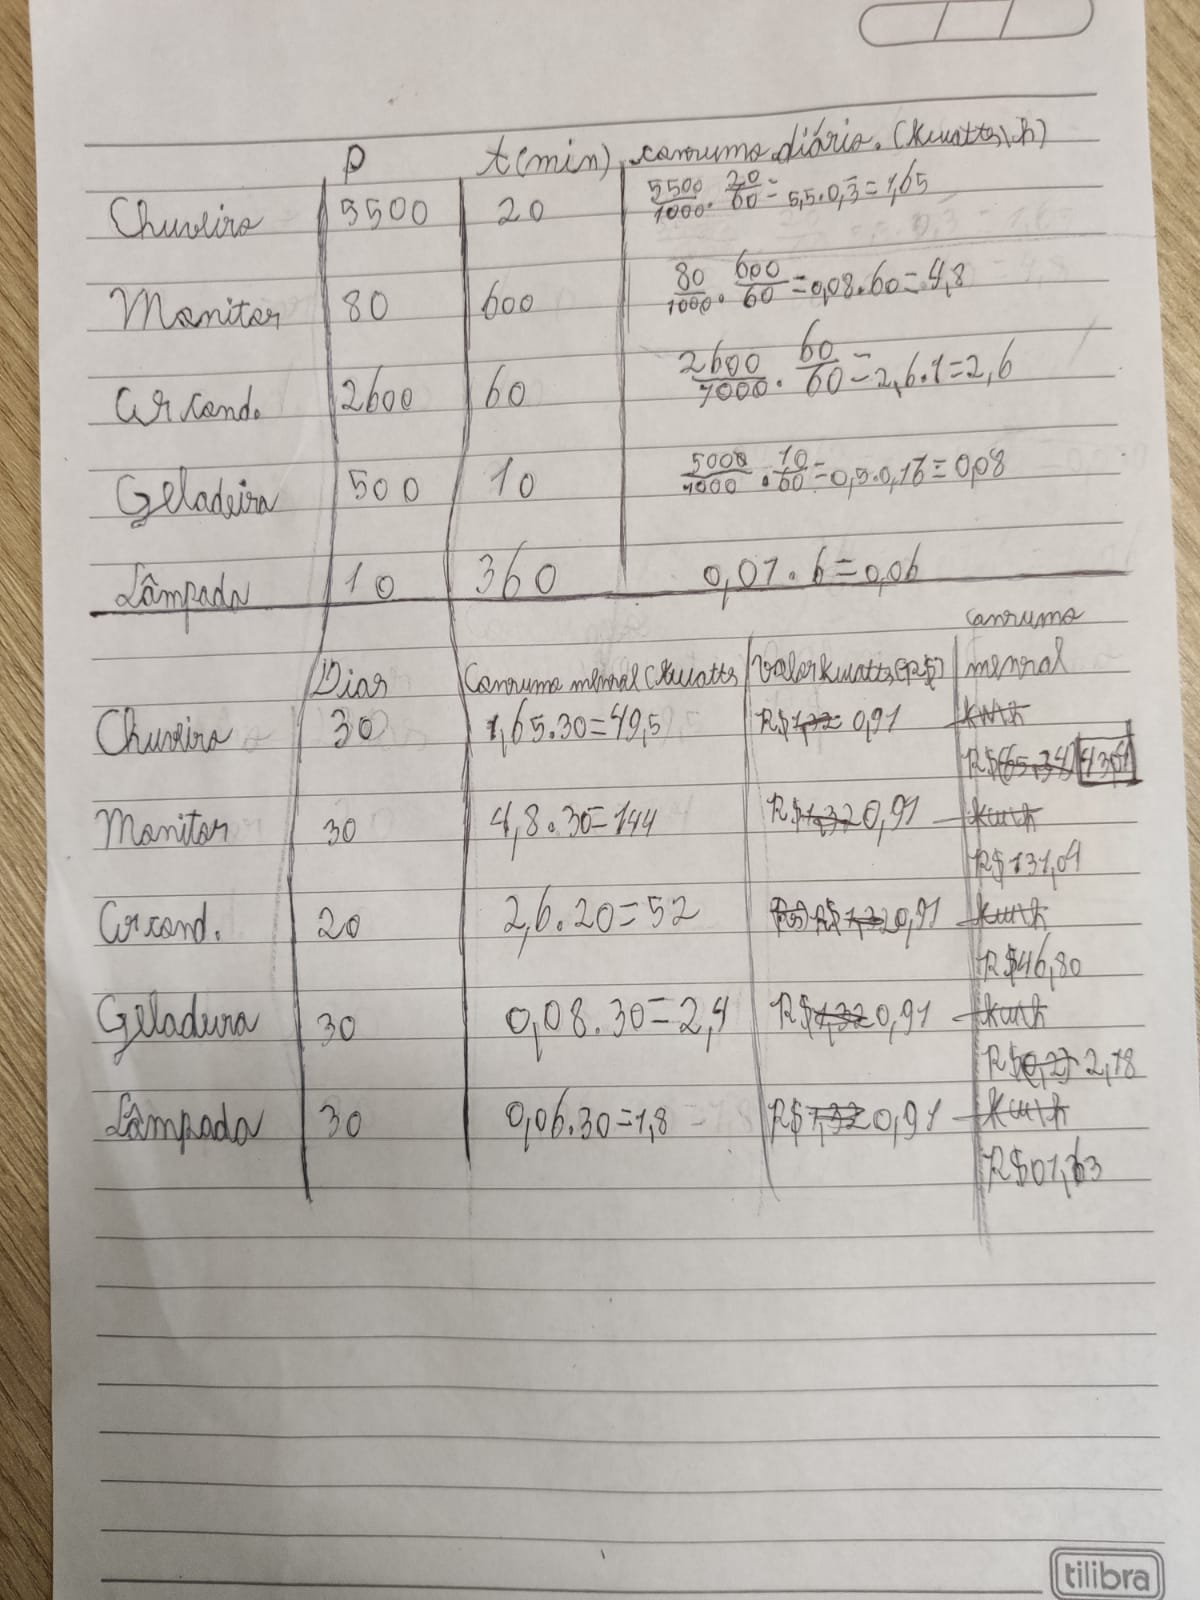 P t(min) consumo diário. (Kwatts\h)
Chuveiro 5500 20 5500/1000 . 20/60 = 5,5.0,3=1,65
Monitor 80 600 80/1000 . 600/60 =0,08.60=4,8
Ar cond. 2600 60 2600/1000 . 60/60 =2,6.1=2,6
Geladeira 500 10 5000/1000 . 10/60 =0,5.0,16=0,08
Lâmpada 10 360 0,01.6=0,06
consumo
Dias Consumo mensal (Kwatts Valor Kwatts (R$) mensal
Chuveiro 30 1,65.30=49,5 R$1,32 0,91 kw\h
R$(65,34)
Monitor 30 4,8.30=144 R$1,32 0,91 kw\h
R$131,04
Ar cond. 20 2,6.20=52 (R$) R$1,32 0,91 kw\h
R$46,80
Geladeira 30 0,08.30=2,4 R$1,32 0,91 kw\h
R$ 2,18
Lâmpada 30 0,06.30=1,8 R$1,32 0,91 kw\h
R$01,63
tilibra